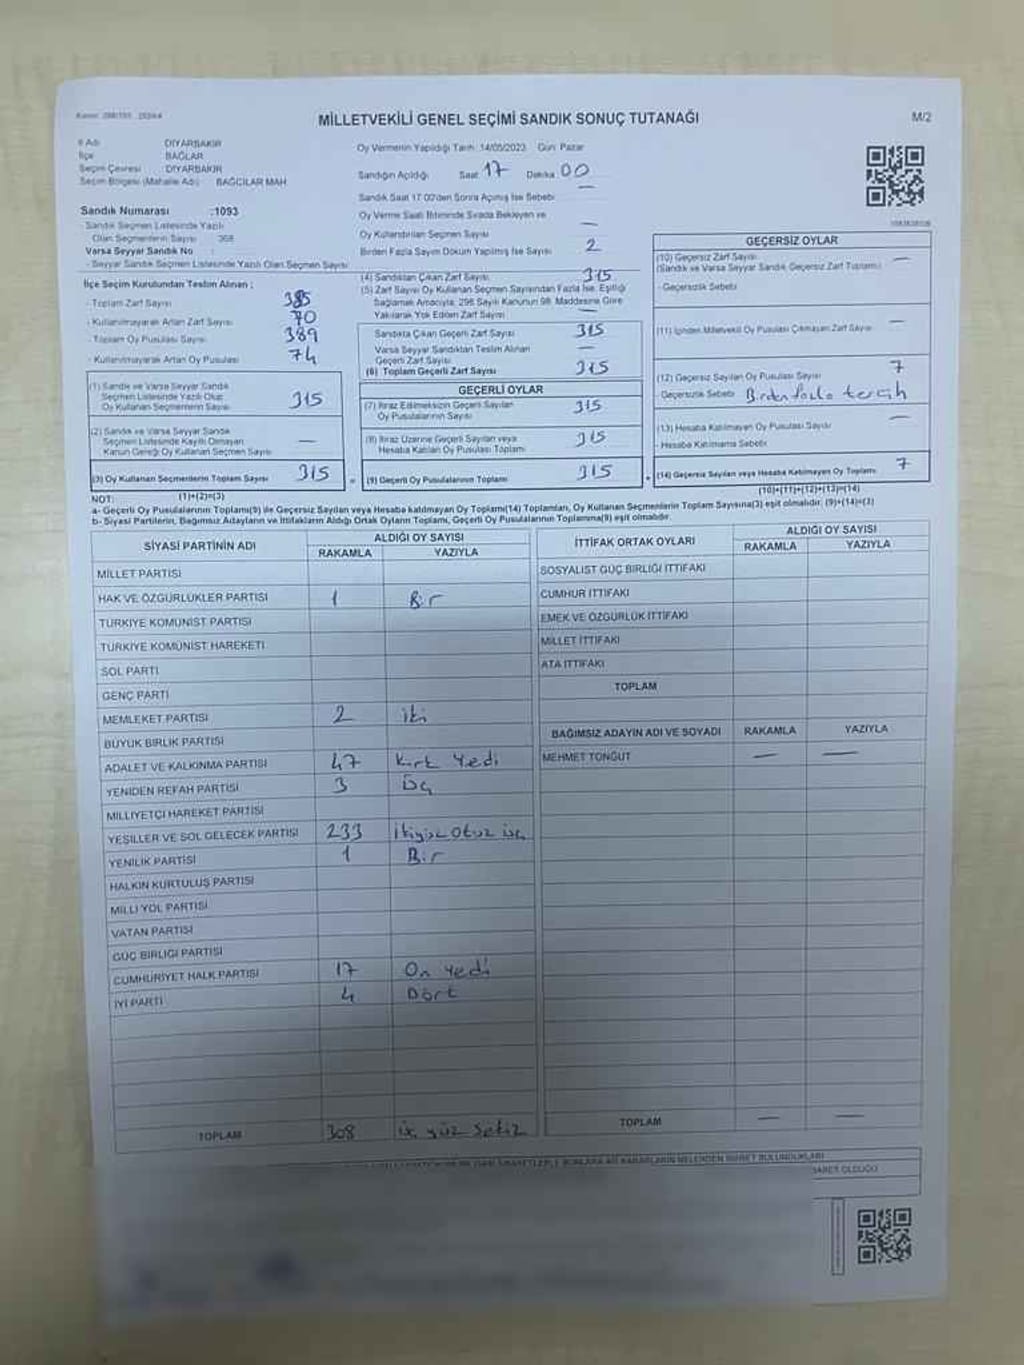 MİLLETVEKİLİ GENEL SEÇİMİ SANDIK SONUÇ TUTANAĞI
M/2
İl Adı DİYARBAKIR
İlçe BAĞLAR
Seçim Çevresi DİYARBAKIR
Seçim Bölgesi (Mahalle Adı) BAĞCILAR MAH
Sandık Numarası :1093
Sandık Seçmen Listesinde Yazılı
Olan Seçmenlerin Sayısı 368
Varsa Seyyar Sandık No :
- Seyyar Sandık Seçmen Listesinde Yazılı Olan Seçmen Sayısı
Oy Vermenin Yapıldığı Tarih: 14/05/2023 Gün: Pazar
Sandığın Açıldığı Saat 17 Dakika 00
Sandık Saat 17:00'den Sonra Açılmış İse Sebebi —
Oy Verme Saati Bitiminde Sırada Bekleyen ve
Oy Kullandırılan Seçmen Sayısı —
Birden Fazla Sayım Döküm Yapılmış İse Sayısı 2
İlçe Seçim Kurulundan Teslim Alınan ;
- Toplam Zarf Sayısı 385
- Kullanılmayarak Artan Zarf Sayısı 70
- Toplam Oy Pusulası Sayısı 389
- Kullanılmayarak Artan Oy Pusulası 74
(1) Sandık ve Varsa Seyyar Sandık
Seçmen Listesinde Yazılı Olup
Oy Kullanan Seçmenlerin Sayısı 315
(2) Sandık ve Varsa Seyyar Sandık
Seçmen Listesinde Kayıtlı Olmayan
Kanun Gereği Oy Kullanan Seçmen Sayısı —
(3) Oy Kullanan Seçmenlerin Toplam Sayısı 315
(1)+(2)=(3)
(4) Sandıktan Çıkan Zarf Sayısı 315
(5) Zarf Sayısı Oy Kullanan Seçmen Sayısından Fazla İse, Eşitliği
Sağlamak Amacıyla, 298 Sayılı Kanunun 98. Maddesine Göre
Yakılarak Yok Edilen Zarf Sayısı —
Sandıkta Çıkan Geçerli Zarf Sayısı 315
Varsa Seyyar Sandıktan Teslim Alınan
Geçerli Zarf Sayısı —
(6) Toplam Geçerli Zarf Sayısı 315
GEÇERLİ OYLAR
(7) İtiraz Edilmeksizin Geçerli Sayılan
Oy Pusulalarının Sayısı 315
(8) İtiraz Üzerine Geçerli Sayılan veya
Hesaba Katılan Oy Pusulası Toplamı 315
= (9) Geçerli Oy Pusulalarının Toplamı 315
GEÇERSİZ OYLAR
(10) Geçersiz Zarf Sayısı
(Sandık ve Varsa Seyyar Sandık Geçersiz Zarf Toplamı) —
- Geçersizlik Sebebi
(11) İçinden Milletvekili Oy Pusulası Çıkmayan Zarf Sayısı —
(12) Geçersiz Sayılan Oy Pusulası Sayısı 7
Geçersizlik Sebebi Birden fazla tercih
(13) Hesaba Katılmayan Oy Pusulası Sayısı —
- Hesaba Katılmama Sebebi
+ (14) Geçersiz Sayılan veya Hesaba Katılmayan Oy Toplamı 7
(10)+(11)+(12)+(13)=(14)
NOT:
a- Geçerli Oy Pusulalarının Toplamı(9) ile Geçersiz Sayılan veya Hesaba katılmayan Oy Toplamı(14) Toplamları, Oy Kullanan Seçmenlerin Toplam Sayısına(3) eşit olmalıdır. (9)+(14)=(3)
b- Siyasi Partilerin, Bağımsız Adayların ve İttifakların Aldığı Ortak Oyların Toplamı, Geçerli Oy Pusulalarının Toplamına(9) eşit olmalıdır.
SİYASİ PARTİNİN ADI ALDIĞI OY SAYISI
RAKAMLA YAZIYLA
MİLLET PARTİSİ
HAK VE ÖZGÜRLÜKLER PARTİSİ 1 Bir
TÜRKİYE KOMÜNİST PARTİSİ
TÜRKİYE KOMÜNİST HAREKETİ
SOL PARTİ
GENÇ PARTİ
MEMLEKET PARTİSİ 2 iki
BÜYÜK BİRLİK PARTİSİ
ADALET VE KALKINMA PARTİSİ 47 Kırk Yedi
YENİDEN REFAH PARTİSİ 3 Üç
MİLLİYETÇİ HAREKET PARTİSİ
YEŞİLLER VE SOL GELECEK PARTİSİ 233 ikiyüz Otuz üç
YENİLİK PARTİSİ 1 Bir
HALKIN KURTULUŞ PARTİSİ
MİLLİ YOL PARTİSİ
VATAN PARTİSİ
GÜÇ BİRLİĞİ PARTİSİ
CUMHURİYET HALK PARTİSİ 17 On Yedi
İYİ PARTİ 4 Dört
TOPLAM 308 üç yüz Sekiz
İTTİFAK ORTAK OYLARI ALDIĞI OY SAYISI
RAKAMLA YAZIYLA
SOSYALİST GÜÇ BİRLİĞİ İTTİFAKI
CUMHUR İTTİFAKI
EMEK VE ÖZGÜRLÜK İTTİFAKI
MİLLET İTTİFAKI
ATA İTTİFAKI
TOPLAM
BAĞIMSIZ ADAYIN ADI VE SOYADI RAKAMLA YAZIYLA
MEHMET TONĞUT — —
TOPLAM — —